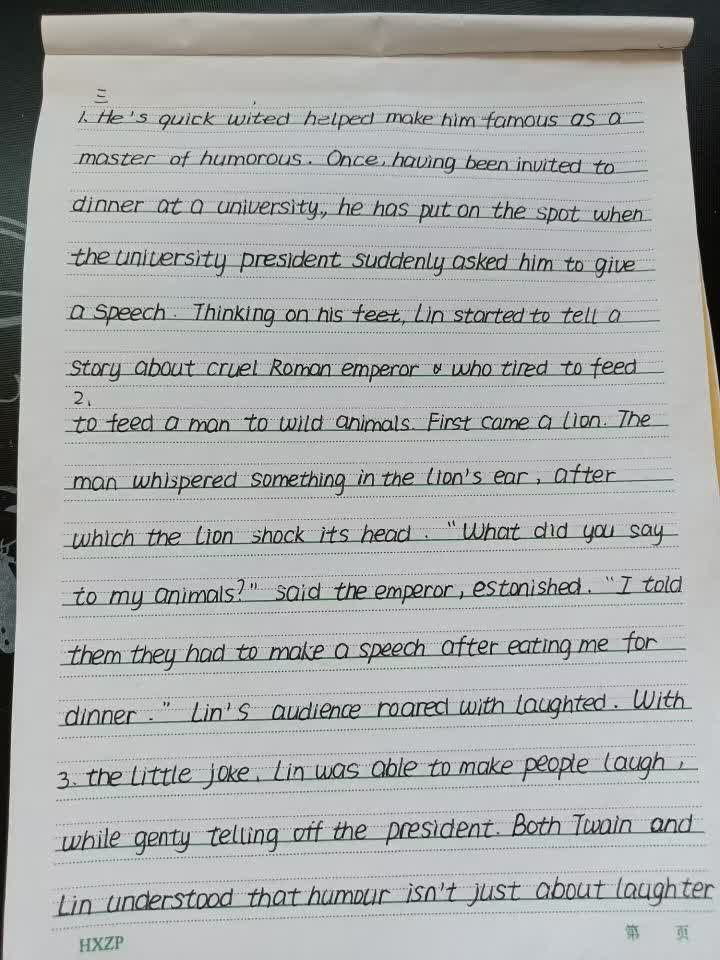 三
1. He's quick wited helped make him famous as a
master of humorous. Once, having been invited to
dinner at a university, he has put on the spot when
the university president suddenly asked him to give
a speech. Thinking on his feet, Lin started to tell a
story about cruel Roman emperor who tired to feed
2.
to feed a man to wild animals. First came a lion. The
man whispered something in the lion's ear, after
which the lion shock its head. "What did you say
to my animals?" said the emperor, estonished. "I told
them they had to make a speech after eating me for
dinner." Lin's audience roared with laughted. With
3. the little joke, Lin was able to make people laugh,
while genty telling off the president. Both Twain and
Lin understood that humour isn't just about laughter
HXZP 第 页